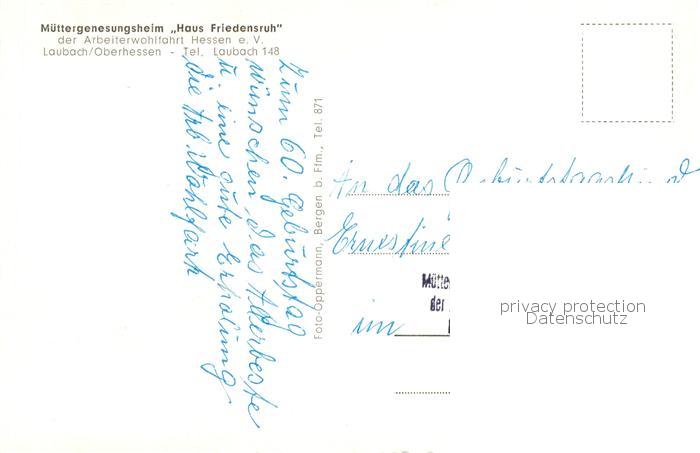 Müttergenesungsheim „Haus Friedensruh"
der Arbeiterwohlfahrt Hessen e. V.
Laubach/Oberhessen - Tel. Laubach 148
Zum 60. Geburtstag
wünschen das Allerbeste
u. eine gute Erholung
die Arb. Wohlfart
Foto-Oppermann, Bergen b. Ffm., Tel. 871
An das
Ernestine
Mütte
der
im
privacy protection
Datenschutz